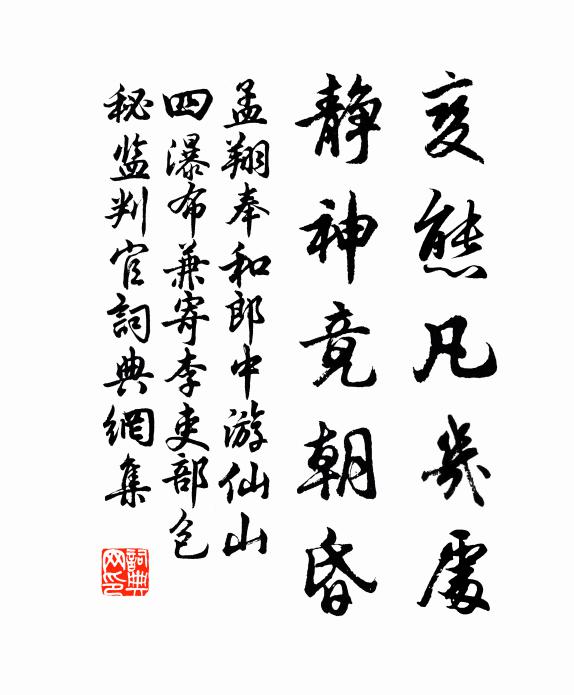 变態凡幾處
静神竟朝昏
孟翔奉和郎中游仙山
四瀑布兼寄李吏部包
秘监判官詞典網集
詞典网印